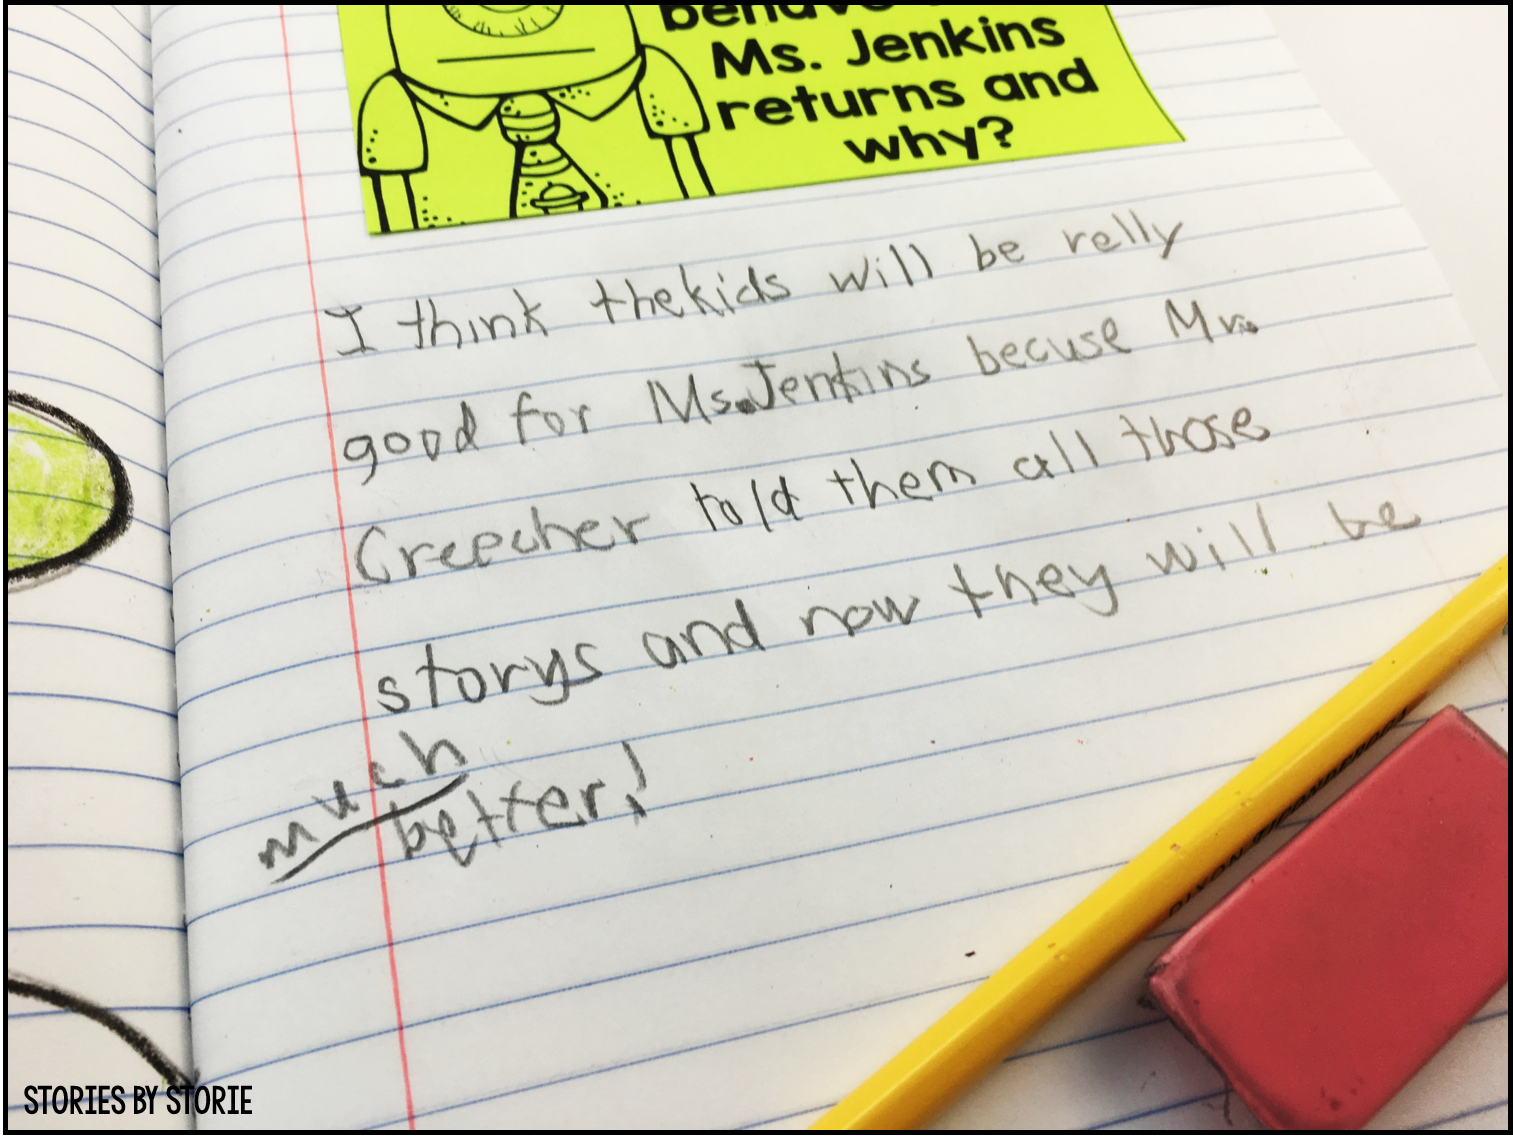 behave
Ms. Jenkins
returns and
why?
I think thekids will be relly
good for Ms.Jenkins becuse Mr.
Creecher told them all those
storys and now they will be
much
better!
STORIES BY STORIE